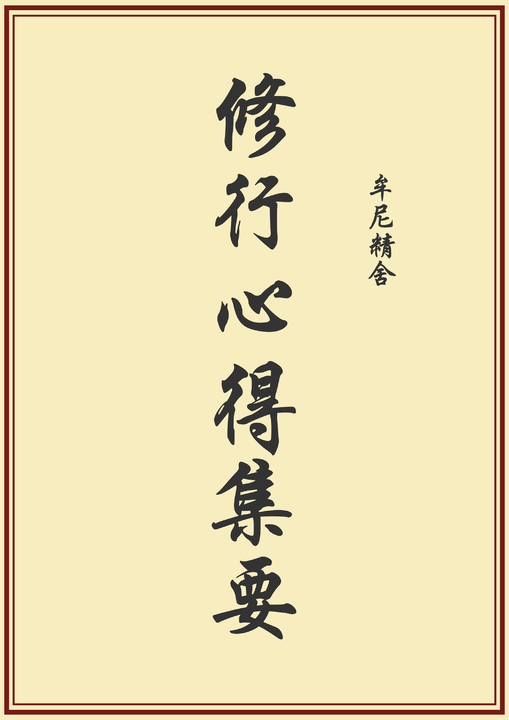 牟尼精舍
修行心得集要